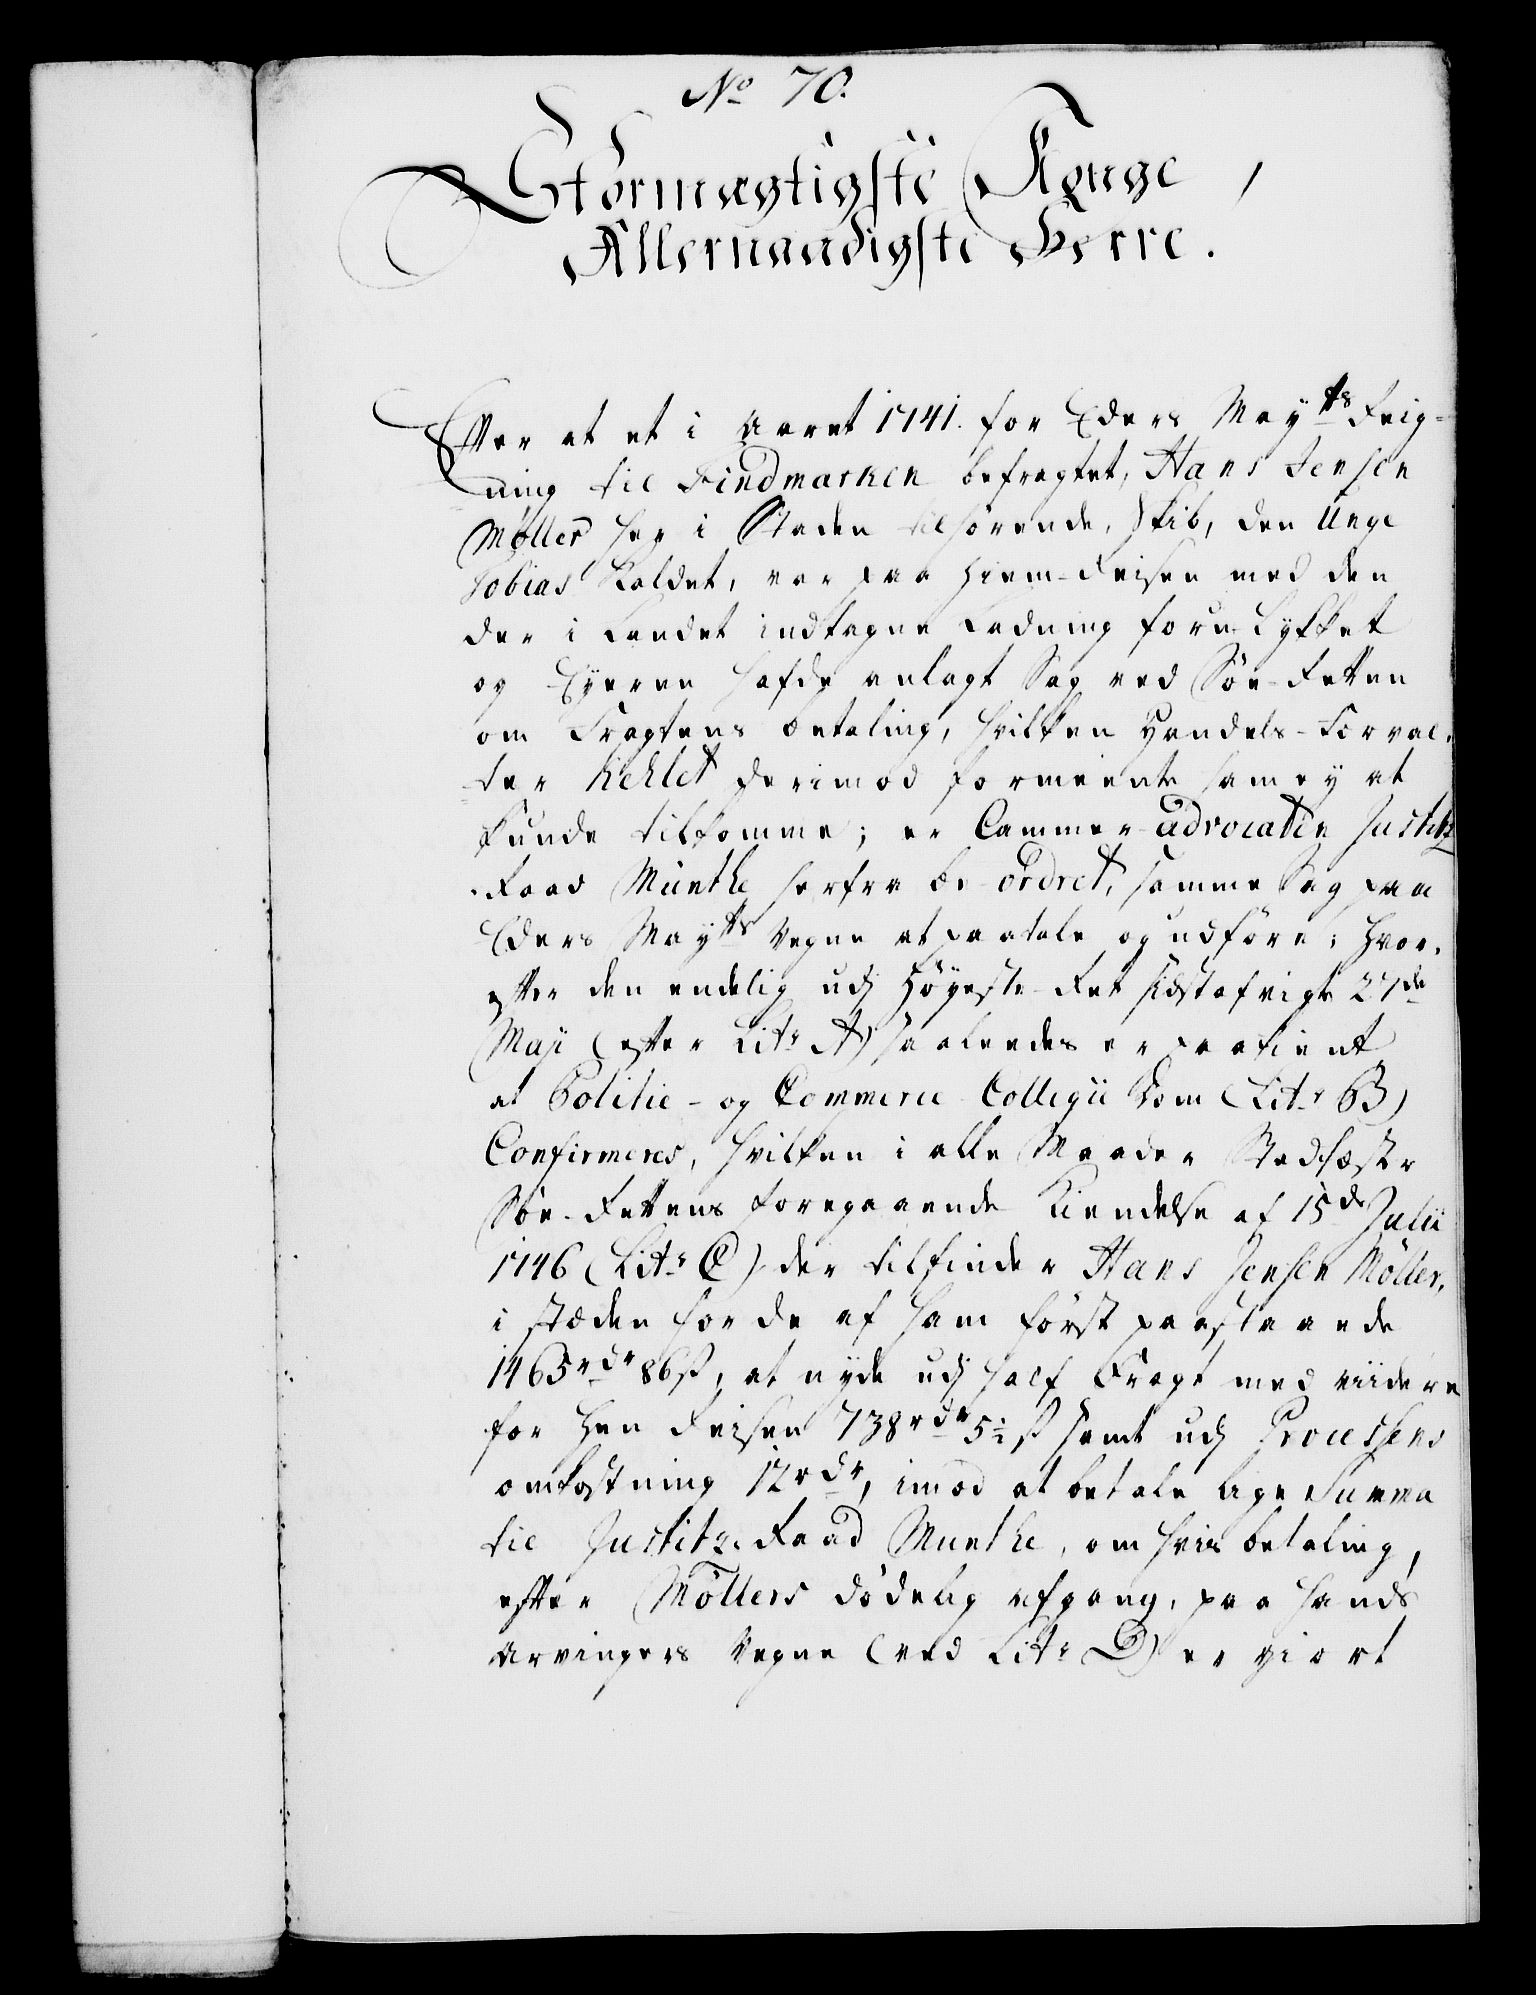 No 70.
Stormægtigste Konge,
Allernaadigste Herre.
Efter at et i Aaret 1741. for Eders Mayts Reig-
ning til Findmarken befragtet, Hans Jensen
Møller her i Staden tilhörende, Skib, den Unge
Tobias kaldet, var paa Hiem-Reisen med den
der i Landet indtagne Ladning forulykket
og Eyeren hafde anlagt Sag ved Söe-Retten
om Fragtens betaling, hvilken Handels-Forval-
ter Kellet derimod formeente ham ey at
kunde tilkomme; er Cammer-Advocaten Justitz
-Raad Munthe herfra be-ordret, samme Sag paa
Eders Mayts Vegne at paatale og udföre; hvor-
efter den endelig udj Höyeste-Ret sidstafvigte 27de
Maji (efter Litr A) saaleedes er paakient
at Politie- og Commerce Collegii Dom (Litr B)
Confirmeres, hvilken i alle Maader Stadfæster
Söe-Rettens foregaaende Kiendelse af 15de Julii
1746 (Litr C) der tilfinder Hans Jensen Möller,
i stæden for de af ham först paastaaende
1465rdr 86s, at nyde udj half Fragt med viidere
for Hen Reisen 738rdr 5½s samt udj Processens
omkostning 12rdr, imod at betale lige Summa
til Justitz-Raad Munthe, om hvis betaling,
efter Möllers dödelig afgang, paa hands
Arvingers Vegne (ved Litr D) er giort